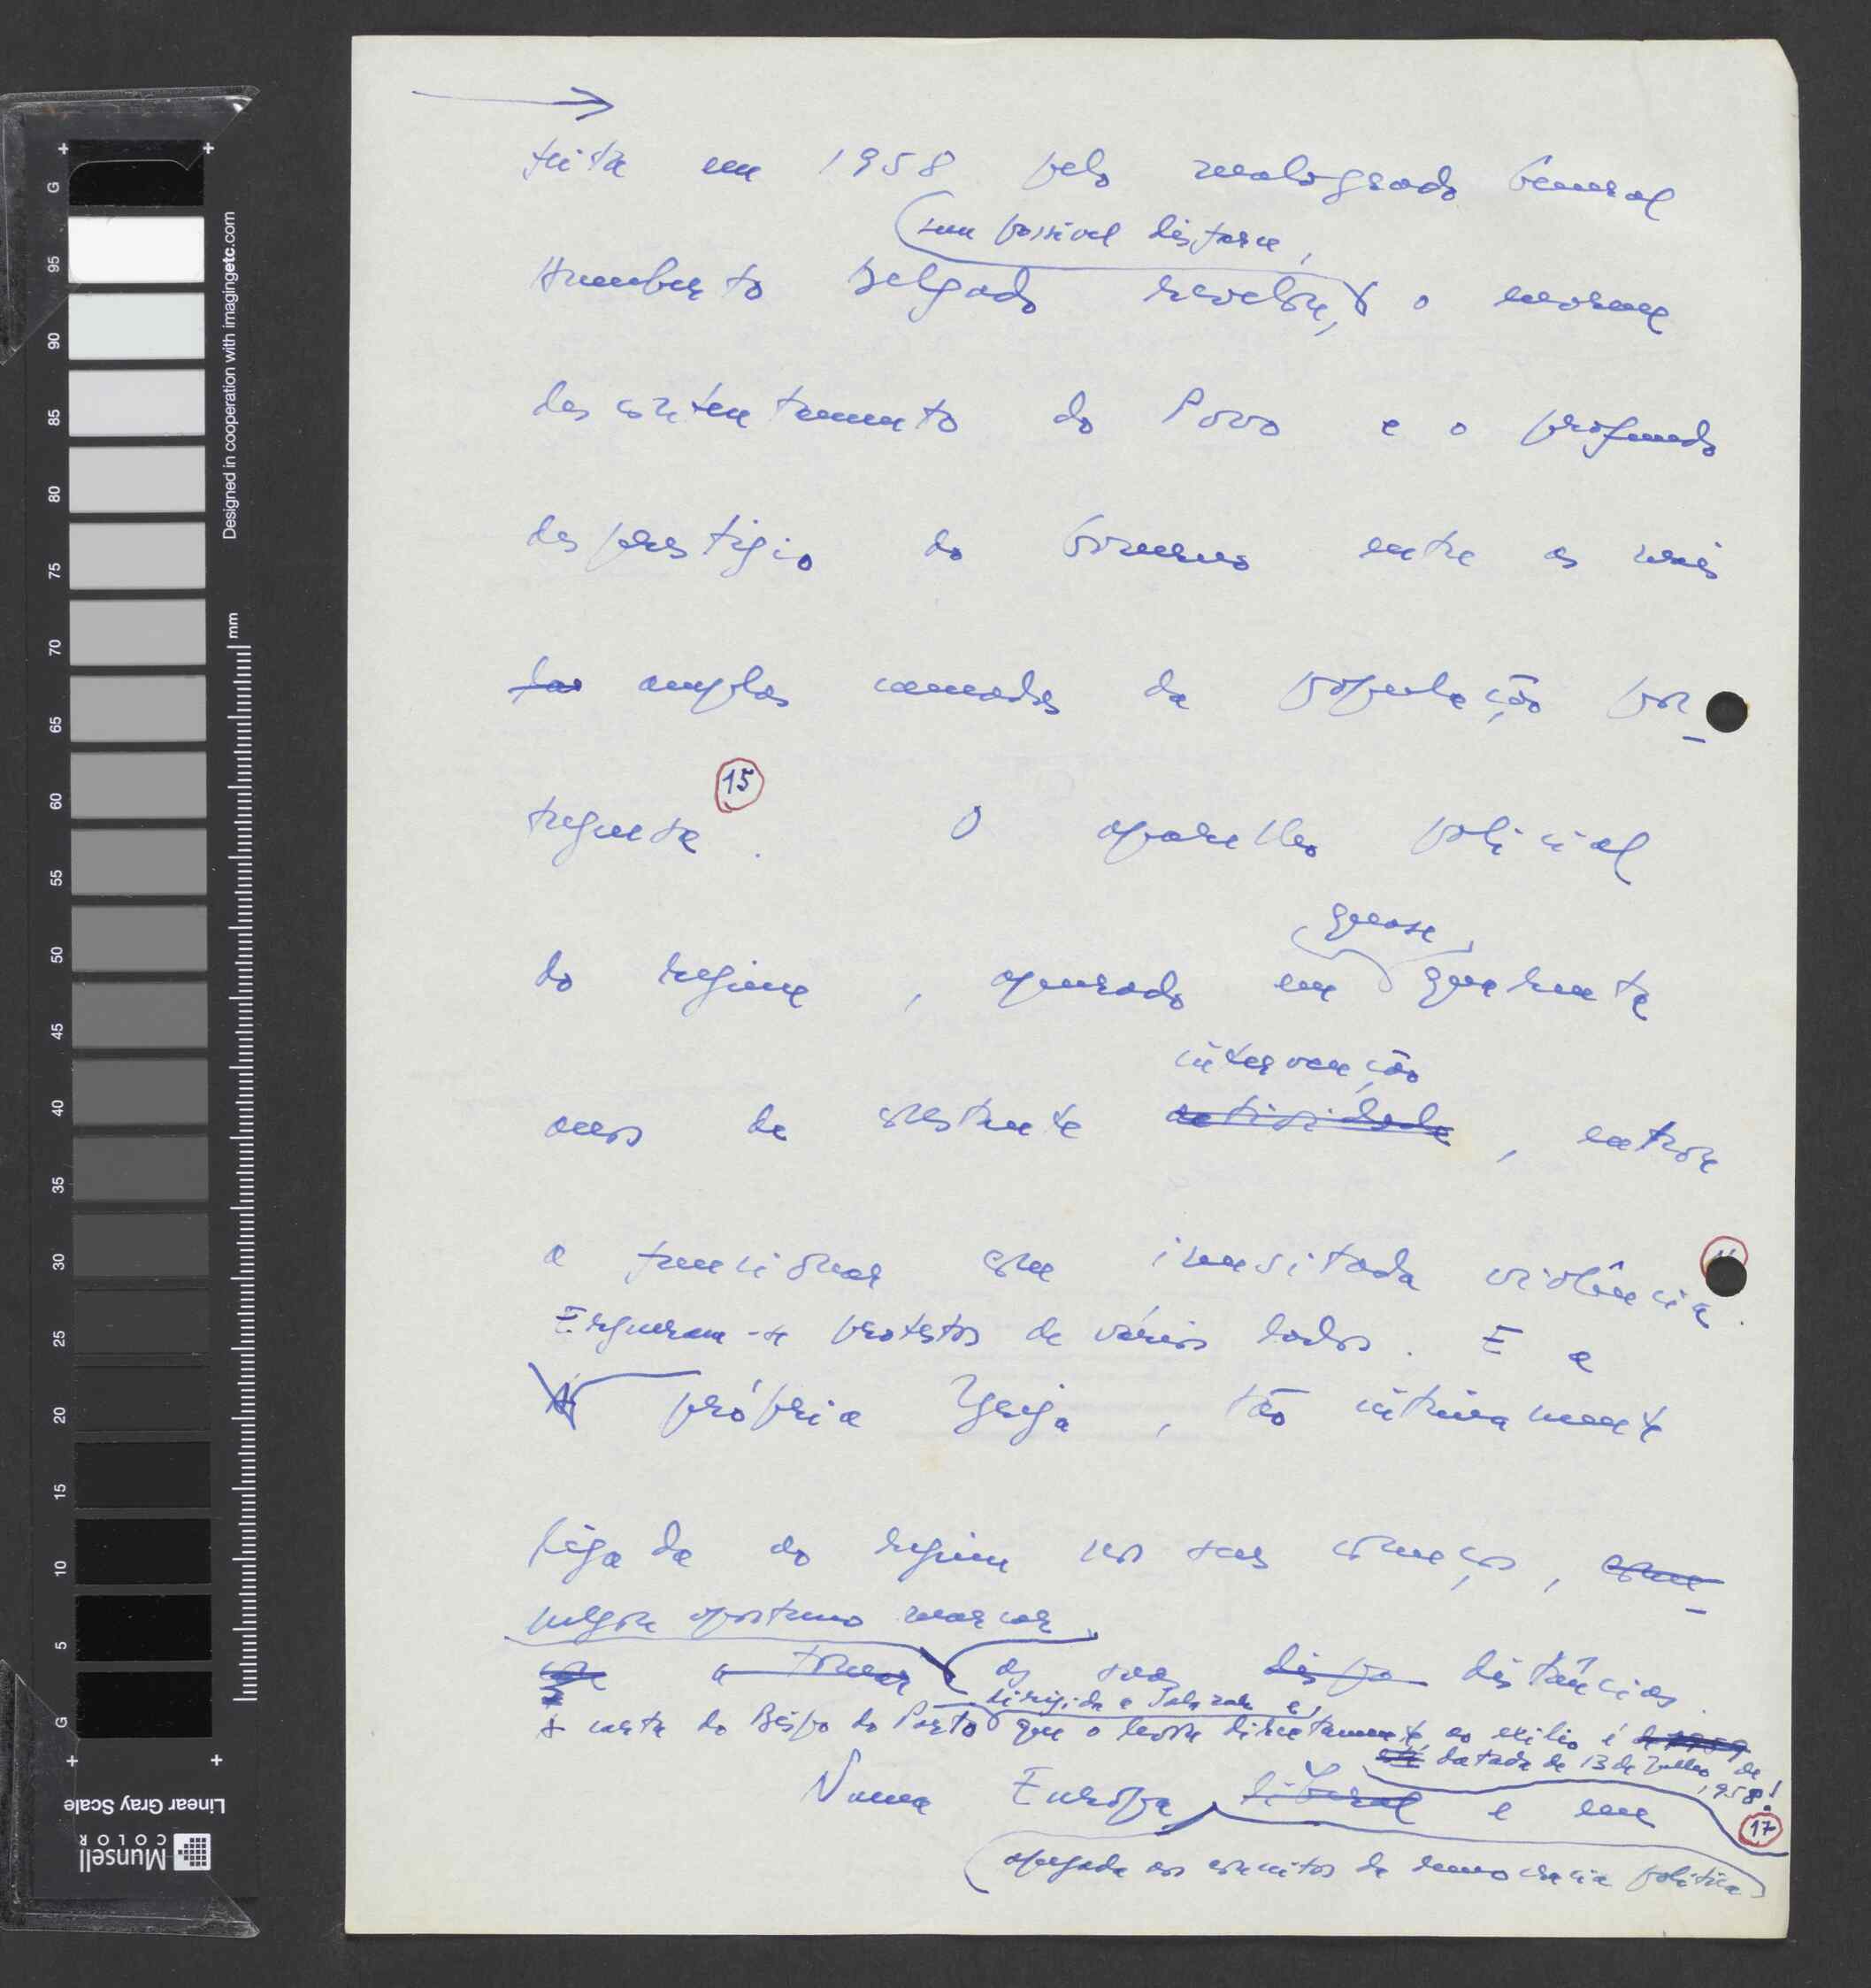 feita em 1958 pelo malogrado General
sem possível disfarce,
Humberto Delgado revelou, o enorme
descontentamento do Povo e o profundo
desprestígio do Governo entre as mais
das amplas camadas da população por-
tuguesa 15. O aparelho policial
quase,
do regime, apurado em quarenta
intervenção
anos de constante actividade, entrou
a funcionar com inusitada violência.
Ergueram-se protestos de vários lados. E a
própria Igreja, tão intimamente
ligada ao regime nos seus começos, com-
julgou oportuno marcar
a tomar as suas distâncias.
dirigida a Salazar e,
A carta do Bispo do Porto que o levou directamente, ao exílio é de 1959
datada de 13 de Julho de
1958!
Numa Europa liberal e em
17
apegada aos conceitos de democracia política
G
95
90
85
80
75
70
65
60
55
50
45
40
35
30
25
20
15
10
5
G
mm
Designed in cooperation with imagingetc.com
Linear Gray Scale
Munsell
COLOR